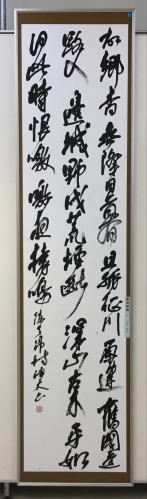 故鄉杳無際日暮且孤征川原迷舊國道
路入邊城野戍荒煙斷深山古木平如
何此時恨噭噭夜猿鳴陳子昂詩